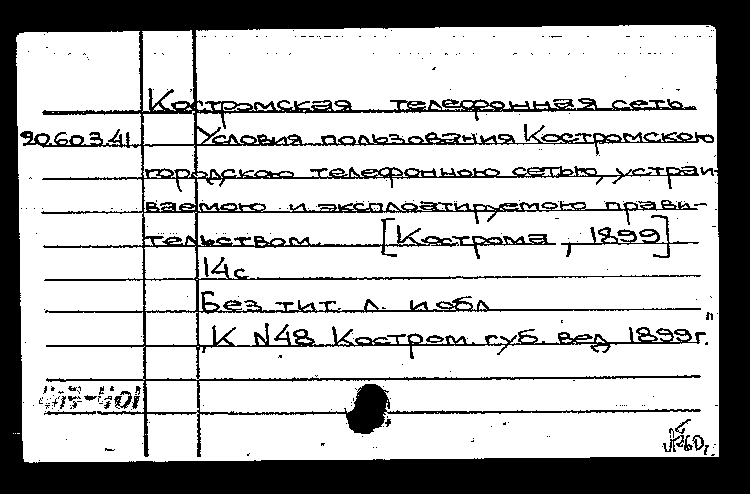 Костромская телефонная сеть
20.60.3.41. Условия пользования Костромскою
городскою телефонною сетью, устраи-
ваемою и эксплоатируемою прави-
тельством [Кострома, 1899]
14 с
Без тит. л. и обл
„К N48 Костром. губ. вед. 1899г."